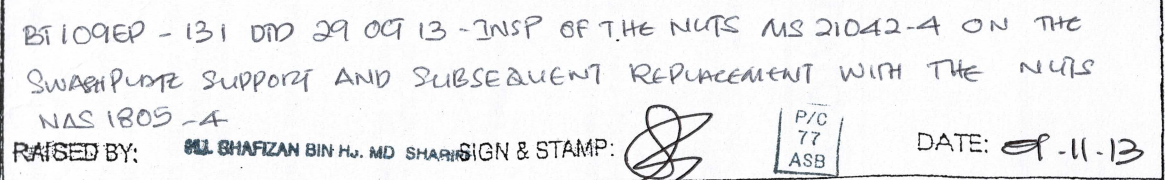 BT 109EP - 131 DTD 29 OCT 13 - INSP OF THE NUTS MS 21042-4 ON THE
SWASHPLATE SUPPORT AND SUBSEQUENT REPLACEMENT WITH THE NUTS
NAS 1805-4
RAISED BY: SHAFIZAN BIN HJ. MD SIGN & STAMP: P/C 77 ASB DATE: -11-13